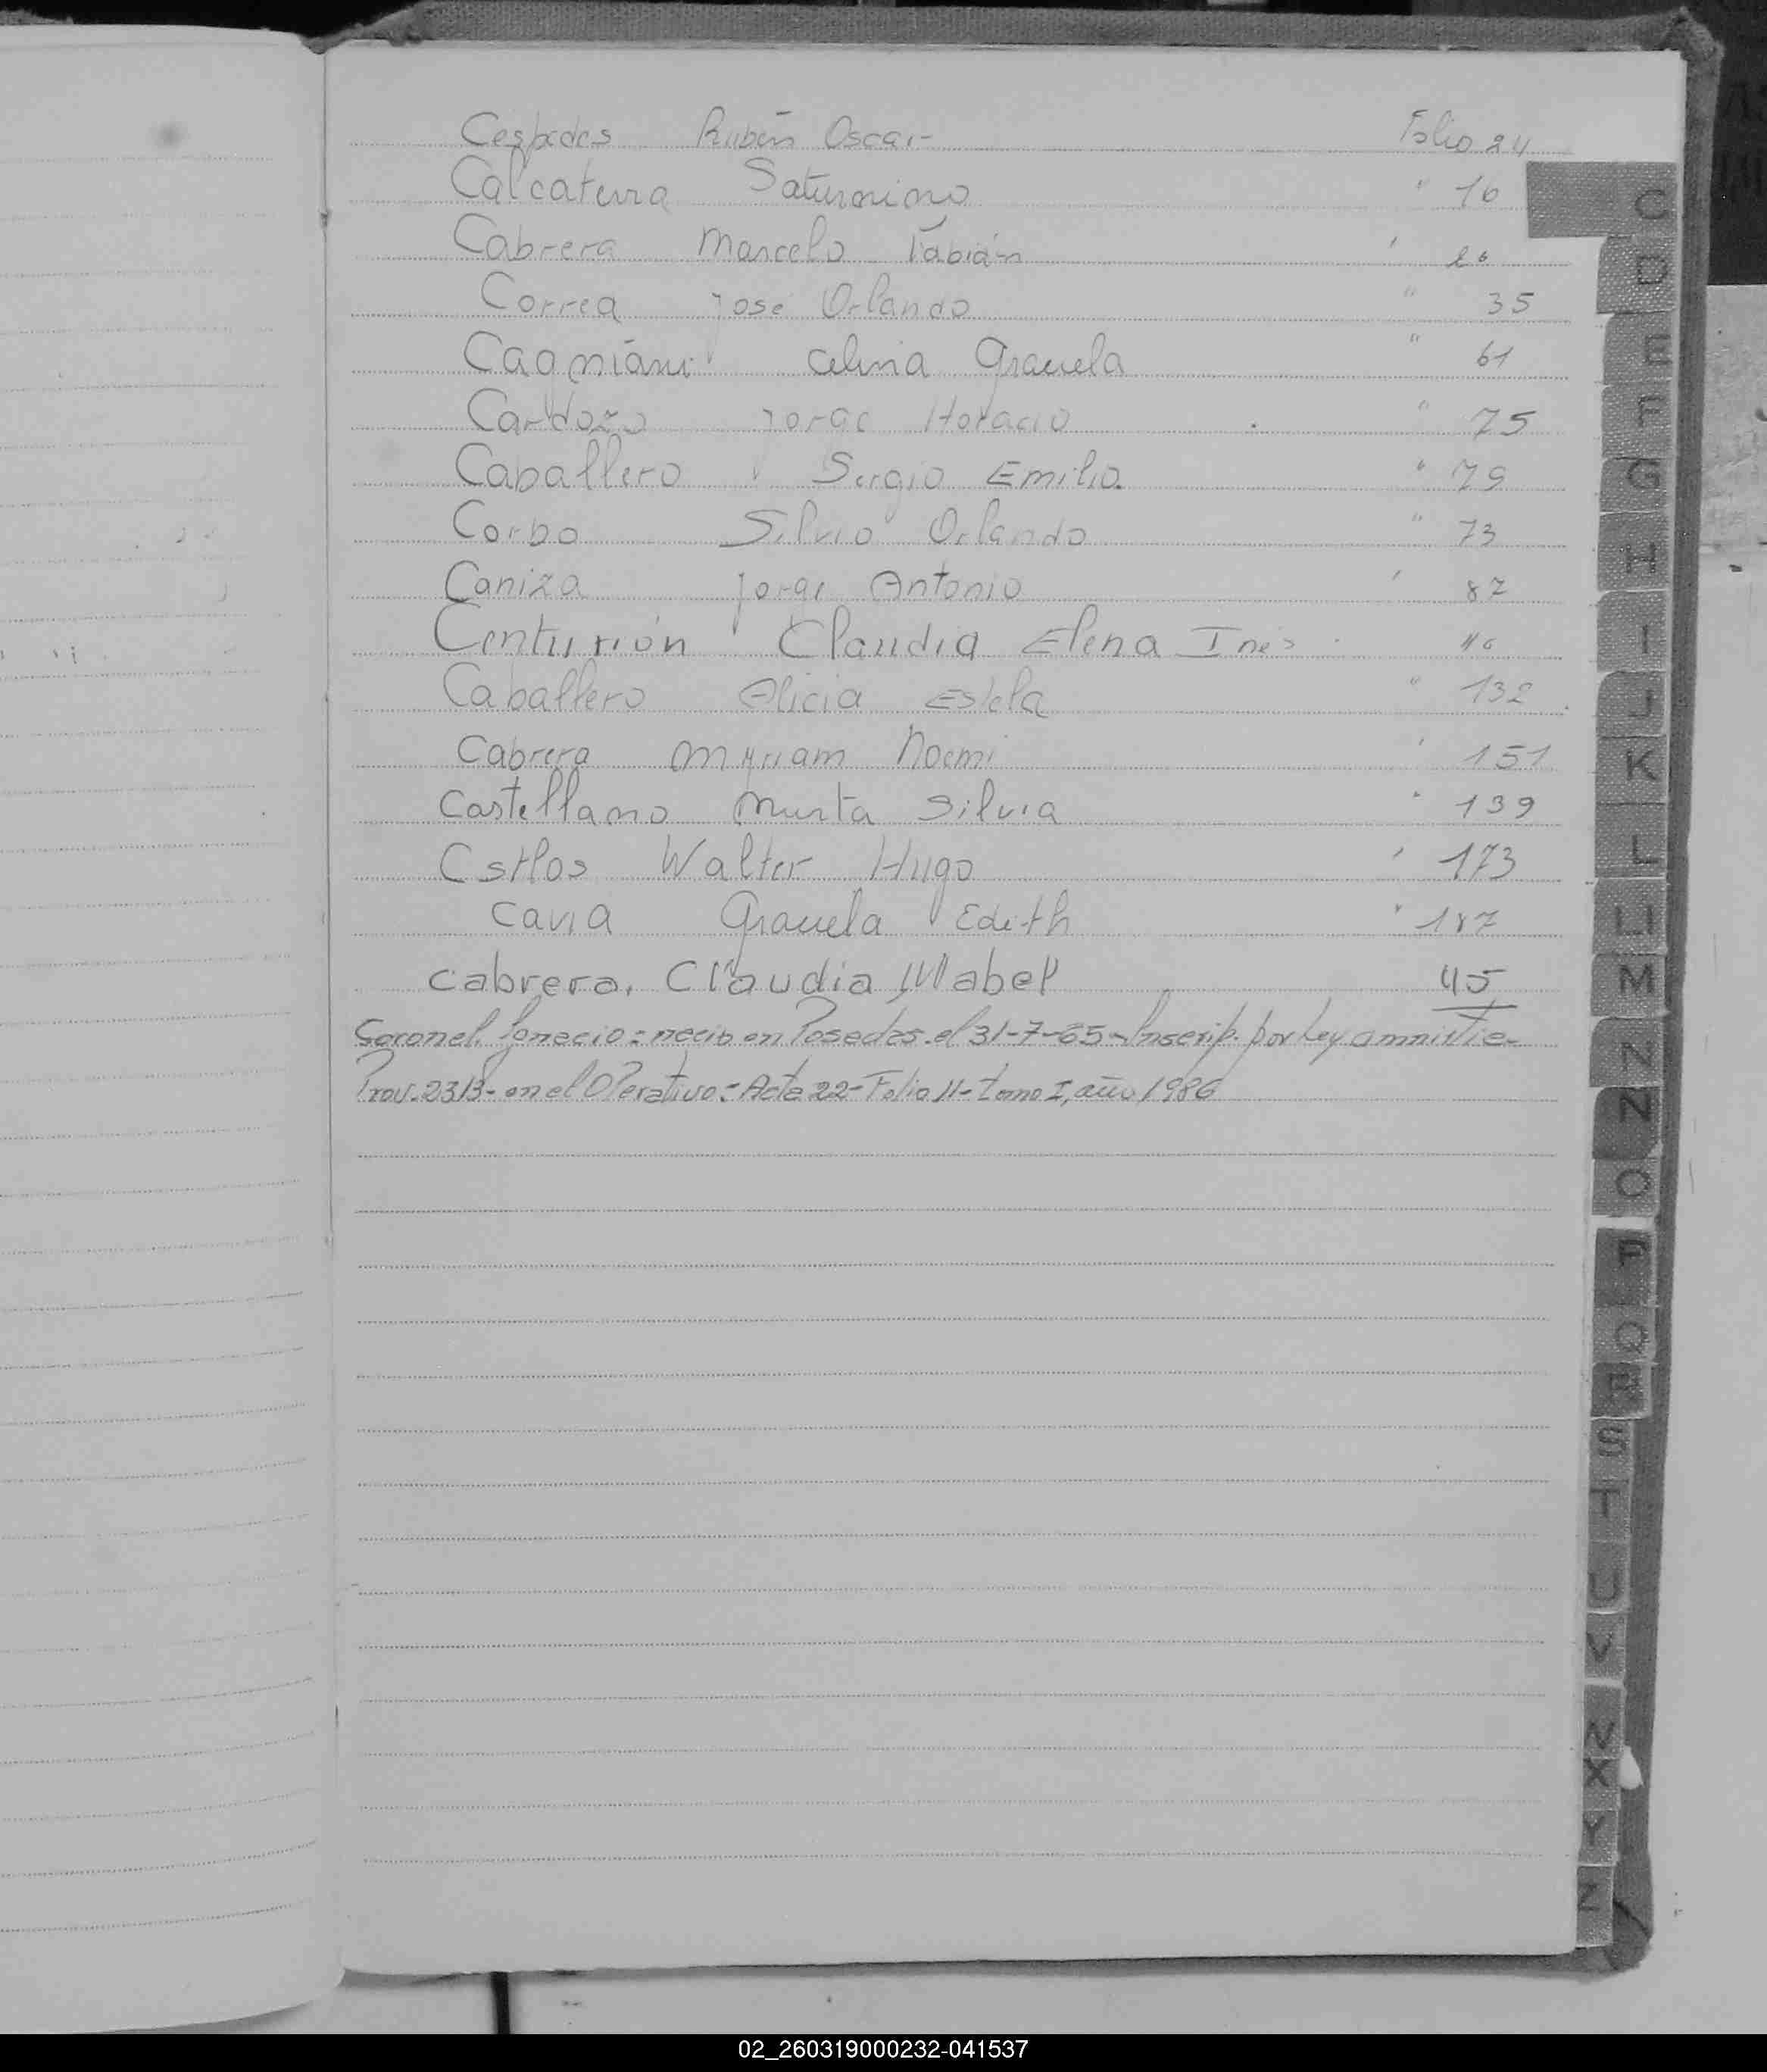 Cespedes Rubén Oscar Folio 24
Calcaterra Saturnino " 16
Cabrera Marcelo Fabián "
Correa José Orlando " 35
Cagniani Celina Graciela " 61
Cardozo Jorge Horacio " 75
Caballero Sergio Emilio " 79
Corbo Silvio Orlando " 73
Caniza Jorge Antonio " 87
Centurión Claudia Elena Inés
Caballero Alicia Estela " 132
Cabrera Myriam Noemi " 151
Castellano Mirta Silvia " 139
Walter Hugo " 173
Cavia Graciela Edith " 187
Cabrera, Claudia Mabel 45
Coronel, Ignacio = nació en Posadas el 31-7-65- Inscrip. por Ley amnistia
Prov. 2313- en el Operativo = Acta 22- Folio 11- tomo I, año 1986
C
D
E
F
G
H
I
J
K
L
Ll
M
N
Ñ
O
P
Q
R
S
T
U
V
X
Y
Z
02_260319000232-041537